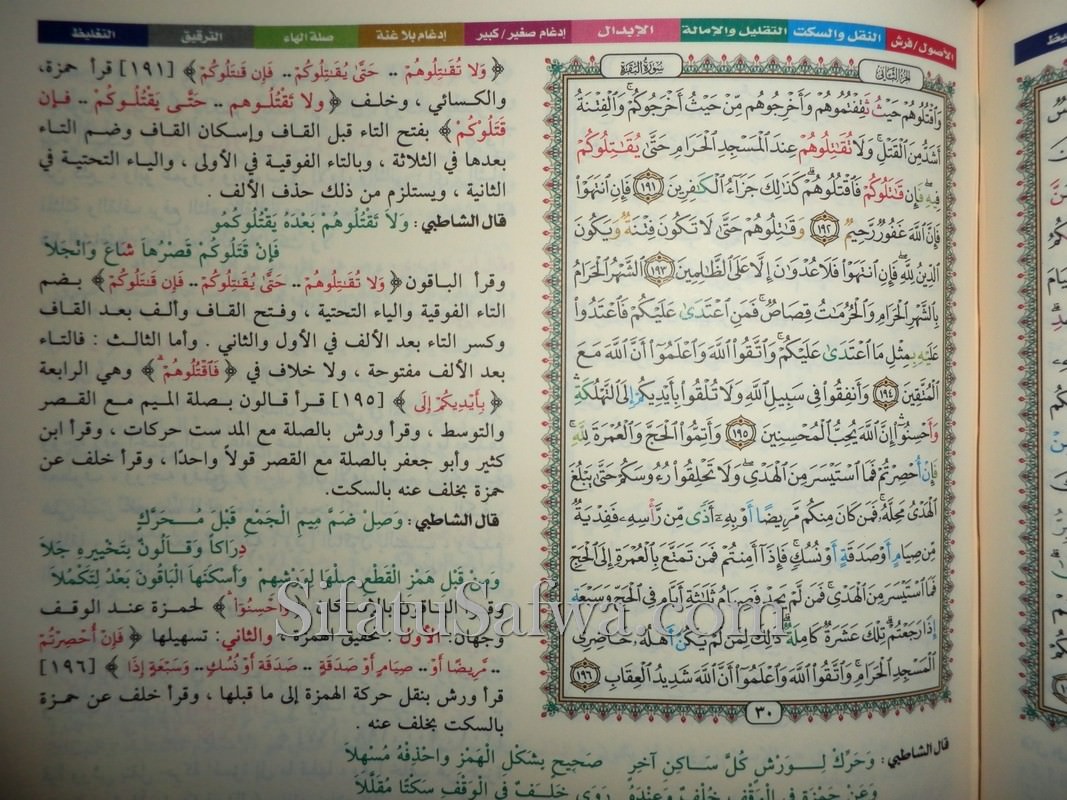 الأصول/فرش
النقل والسكت
التقليل والإمالة
الإبدال
إدغام صغير/كبير
إدغام بلا غنة
صلة الهاء
الترقيق
التغليظ
الجزء الثاني
سورة البقرة
وَاقْتُلُوهُمْ حَيْثُ ثَقِفْتُمُوهُمْ وَأَخْرِجُوهُم مِّنْ حَيْثُ أَخْرَجُوكُمْ ۚ وَالْفِتْنَةُ
أَشَدُّ مِنَ الْقَتْلِ ۚ وَلَا تُقَاتِلُوهُمْ عِندَ الْمَسْجِدِ الْحَرَامِ حَتَّىٰ يُقَاتِلُوكُمْ
فِيهِ ۖ فَإِن قَاتَلُوكُمْ فَاقْتُلُوهُمْ ۗ كَذَٰلِكَ جَزَاءُ الْكَافِرِينَ ١٩١ فَإِنِ انتَهَوْا
فَإِنَّ اللَّهَ غَفُورٌ رَّحِيمٌ ١٩٢ وَقَاتِلُوهُمْ حَتَّىٰ لَا تَكُونَ فِتْنَةٌ وَيَكُونَ
الدِّينُ لِلَّهِ ۖ فَإِنِ انتَهَوْا فَلَا عُدْوَانَ إِلَّا عَلَى الظَّالِمِينَ ١٩٣ الشَّهْرُ الْحَرَامُ
بِالشَّهْرِ الْحَرَامِ وَالْحُرُمَاتُ قِصَاصٌ ۚ فَمَنِ اعْتَدَىٰ عَلَيْكُمْ فَاعْتَدُوا
عَلَيْهِ بِمِثْلِ مَا اعْتَدَىٰ عَلَيْكُمْ ۚ وَاتَّقُوا اللَّهَ وَاعْلَمُوا أَنَّ اللَّهَ مَعَ
الْمُتَّقِينَ ١٩٤ وَأَنفِقُوا فِي سَبِيلِ اللَّهِ وَلَا تُلْقُوا بِأَيْدِيكُمْ إِلَى التَّهْلُكَةِ ۛ
وَأَحْسِنُوا ۛ إِنَّ اللَّهَ يُحِبُّ الْمُحْسِنِينَ ١٩٥ وَأَتِمُّوا الْحَجَّ وَالْعُمْرَةَ لِلَّهِ ۚ
فَإِنْ أُحْصِرْتُمْ فَمَا اسْتَيْسَرَ مِنَ الْهَدْيِ ۖ وَلَا تَحْلِقُوا رُءُوسَكُمْ حَتَّىٰ يَبْلُغَ
الْهَدْيُ مَحِلَّهُ ۚ فَمَن كَانَ مِنكُم مَّرِيضًا أَوْ بِهِ أَذًى مِّن رَّأْسِهِ فَفِدْيَةٌ
مِّن صِيَامٍ أَوْ صَدَقَةٍ أَوْ نُسُكٍ ۚ فَإِذَا أَمِنتُمْ فَمَن تَمَتَّعَ بِالْعُمْرَةِ إِلَى الْحَجِّ
فَمَا اسْتَيْسَرَ مِنَ الْهَدْيِ ۚ فَمَن لَّمْ يَجِدْ فَصِيَامُ ثَلَاثَةِ أَيَّامٍ فِي الْحَجِّ وَسَبْعَةٍ
إِذَا رَجَعْتُمْ ۗ تِلْكَ عَشَرَةٌ كَامِلَةٌ ۗ ذَٰلِكَ لِمَن لَّمْ يَكُنْ أَهْلُهُ حَاضِرِي
الْمَسْجِدِ الْحَرَامِ ۚ وَاتَّقُوا اللَّهَ وَاعْلَمُوا أَنَّ اللَّهَ شَدِيدُ الْعِقَابِ ١٩٦
٣٠
﴿ وَلَا تُقَاتِلُوهُمْ .. حَتَّىٰ يُقَاتِلُوكُمْ .. فَإِن قَاتَلُوكُمْ ﴾ [١٩١] قرأ حمزة،
والكسائي ، وخلف ﴿ ولا تَقْتُلُوهم .. حَتَّى يَقْتُلُوكُمْ .. فَإِن
قَتَلُوكُمْ ﴾ بفتح التاء قبل القاف وإسكان القاف وضم التاء
بعدها في الثلاثة ، وبالتاء الفوقية في الأولى ، والياء التحتية في
الثانية ، ويستلزم من ذلك حذف الألف .
قال الشاطبي : وَلاَ تَقْتُلُوهُمْ بَعْدَهُ يَقْتُلُوكُمُو
فَإِنْ قَتَلُوكُمْ قَصْرُهَا شَاعَ وَانْجَلَا
وقرأ الباقون ﴿ وَلَا تُقَاتِلُوهُمْ .. حَتَّىٰ يُقَاتِلُوكُمْ .. فَإِن قَاتَلُوكُمْ ﴾ بضم
التاء الفوقية والياء التحتية ، وفتح القاف وألف بعد القاف
وكسر التاء بعد الألف في الأول والثاني . وأما الثالث : فالتاء
بعد الألف مفتوحة ، ولا خلاف في ﴿ فَاقْتُلُوهُمْ ۗ ﴾ وهي الرابعة
﴿ بِأَيْدِيكُمْ إِلَى ﴾ [١٩٥] قرأ قالون بصلة الميم مع القصر
والتوسط ، وقرأ ورش بالصلة مع المد ست حركات ، وقرأ ابن
كثير وأبو جعفر بالصلة مع القصر قولاً واحدًا ، وقرأ خلف عن
حمزة بخلف عنه بالسكت.
قال الشاطبي : وَصِلْ ضَمَّ مِيمِ الْجَمْعِ قَبْلَ مُحَرَّكٍ
دِرَاكاً وَقَالُونٌ بِتَخْيِيرِهِ جَلاَ
وَمِنْ قَبْلِ هَمْزِ الْقَطْعِ صِلْهَا لِوَرْشِهِمْ وَأَسْكَنَهَا الْبَاقُونَ بَعْدُ لِتَكْمُلاَ
وقرأ الباقون بالإسكان ﴿ وَأَحْسِنُوا ۛ ﴾ لحمزة عند الوقف
وجهان: الأول : تحقيق الهمزة، والثاني: تسهيلها ﴿ فَإِنْ أُحْصِرْتُمْ
.. مَّرِيضًا أَوْ .. صِيَامٍ أَوْ صَدَقَةٍ .. صَدَقَةٍ أَوْ نُسُكٍ .. وَسَبْعَةٍ إِذَا ﴾ [١٩٦]
قرأ ورش بنقل حركة الهمزة إلى ما قبلها ، وقرأ خلف عن حمزة
بالسكت بخلف عنه .
قال الشاطبي : وَحَرِّكْ لِوَرْشٍ كُلَّ سَاكِنٍ آخِرٍ صَحِيحٍ بِشَكْلِ الْهَمْزِ وَاحْذِفْهُ مُسْهِلاَ
وَعَنْ حَمْزَةٍ فِي الْوَقْفِ خُلْفٌ وَعِنْدَهُ رَوَى خَلَفٌ فِي الْوَقْفِ سَكْتًا مُقَلَّلاَ
SifatuSafwa.com